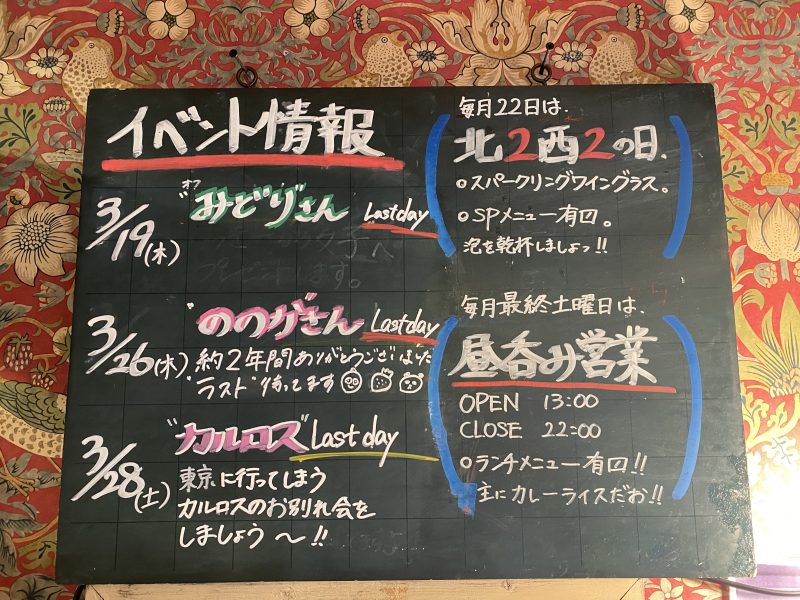 イベント情報
3/19(木)
オフ
"みどりさん Last day
3/26(木)
"ののかさん Last day
約2年間ありがとうございました
"ラスト"待ってます
3/28(土)
"カルロス" Last day
東京に行ってしまう
カルロスのお別れ会を
しましょう〜!!
毎月22日は、
北2西2の日、
スパークリングワイングラス。
SPメニュー有回。
泡を乾杯しましょっ!!
毎月最終土曜日は、
昼呑み営業
OPEN 13:00
CLOSE 22:00
ランチメニュー有回!!
主にカレーライスだお!!